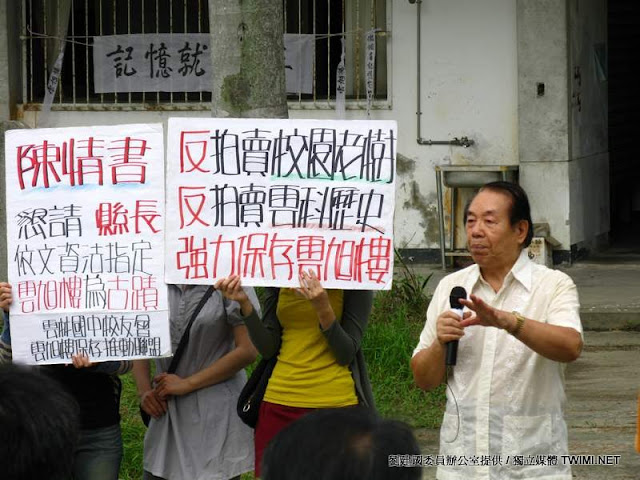 記憶就
陳情書
懇請 縣長
依文資法指定
雲旭樓為古蹟
雲林國中校友會
雲旭樓保存推動聯盟
反拍賣校園老樹
反拍賣雲科歷史
強力保存雲旭樓
劉建國委員辦公室提供 / 獨立媒體 TWIMI.NET